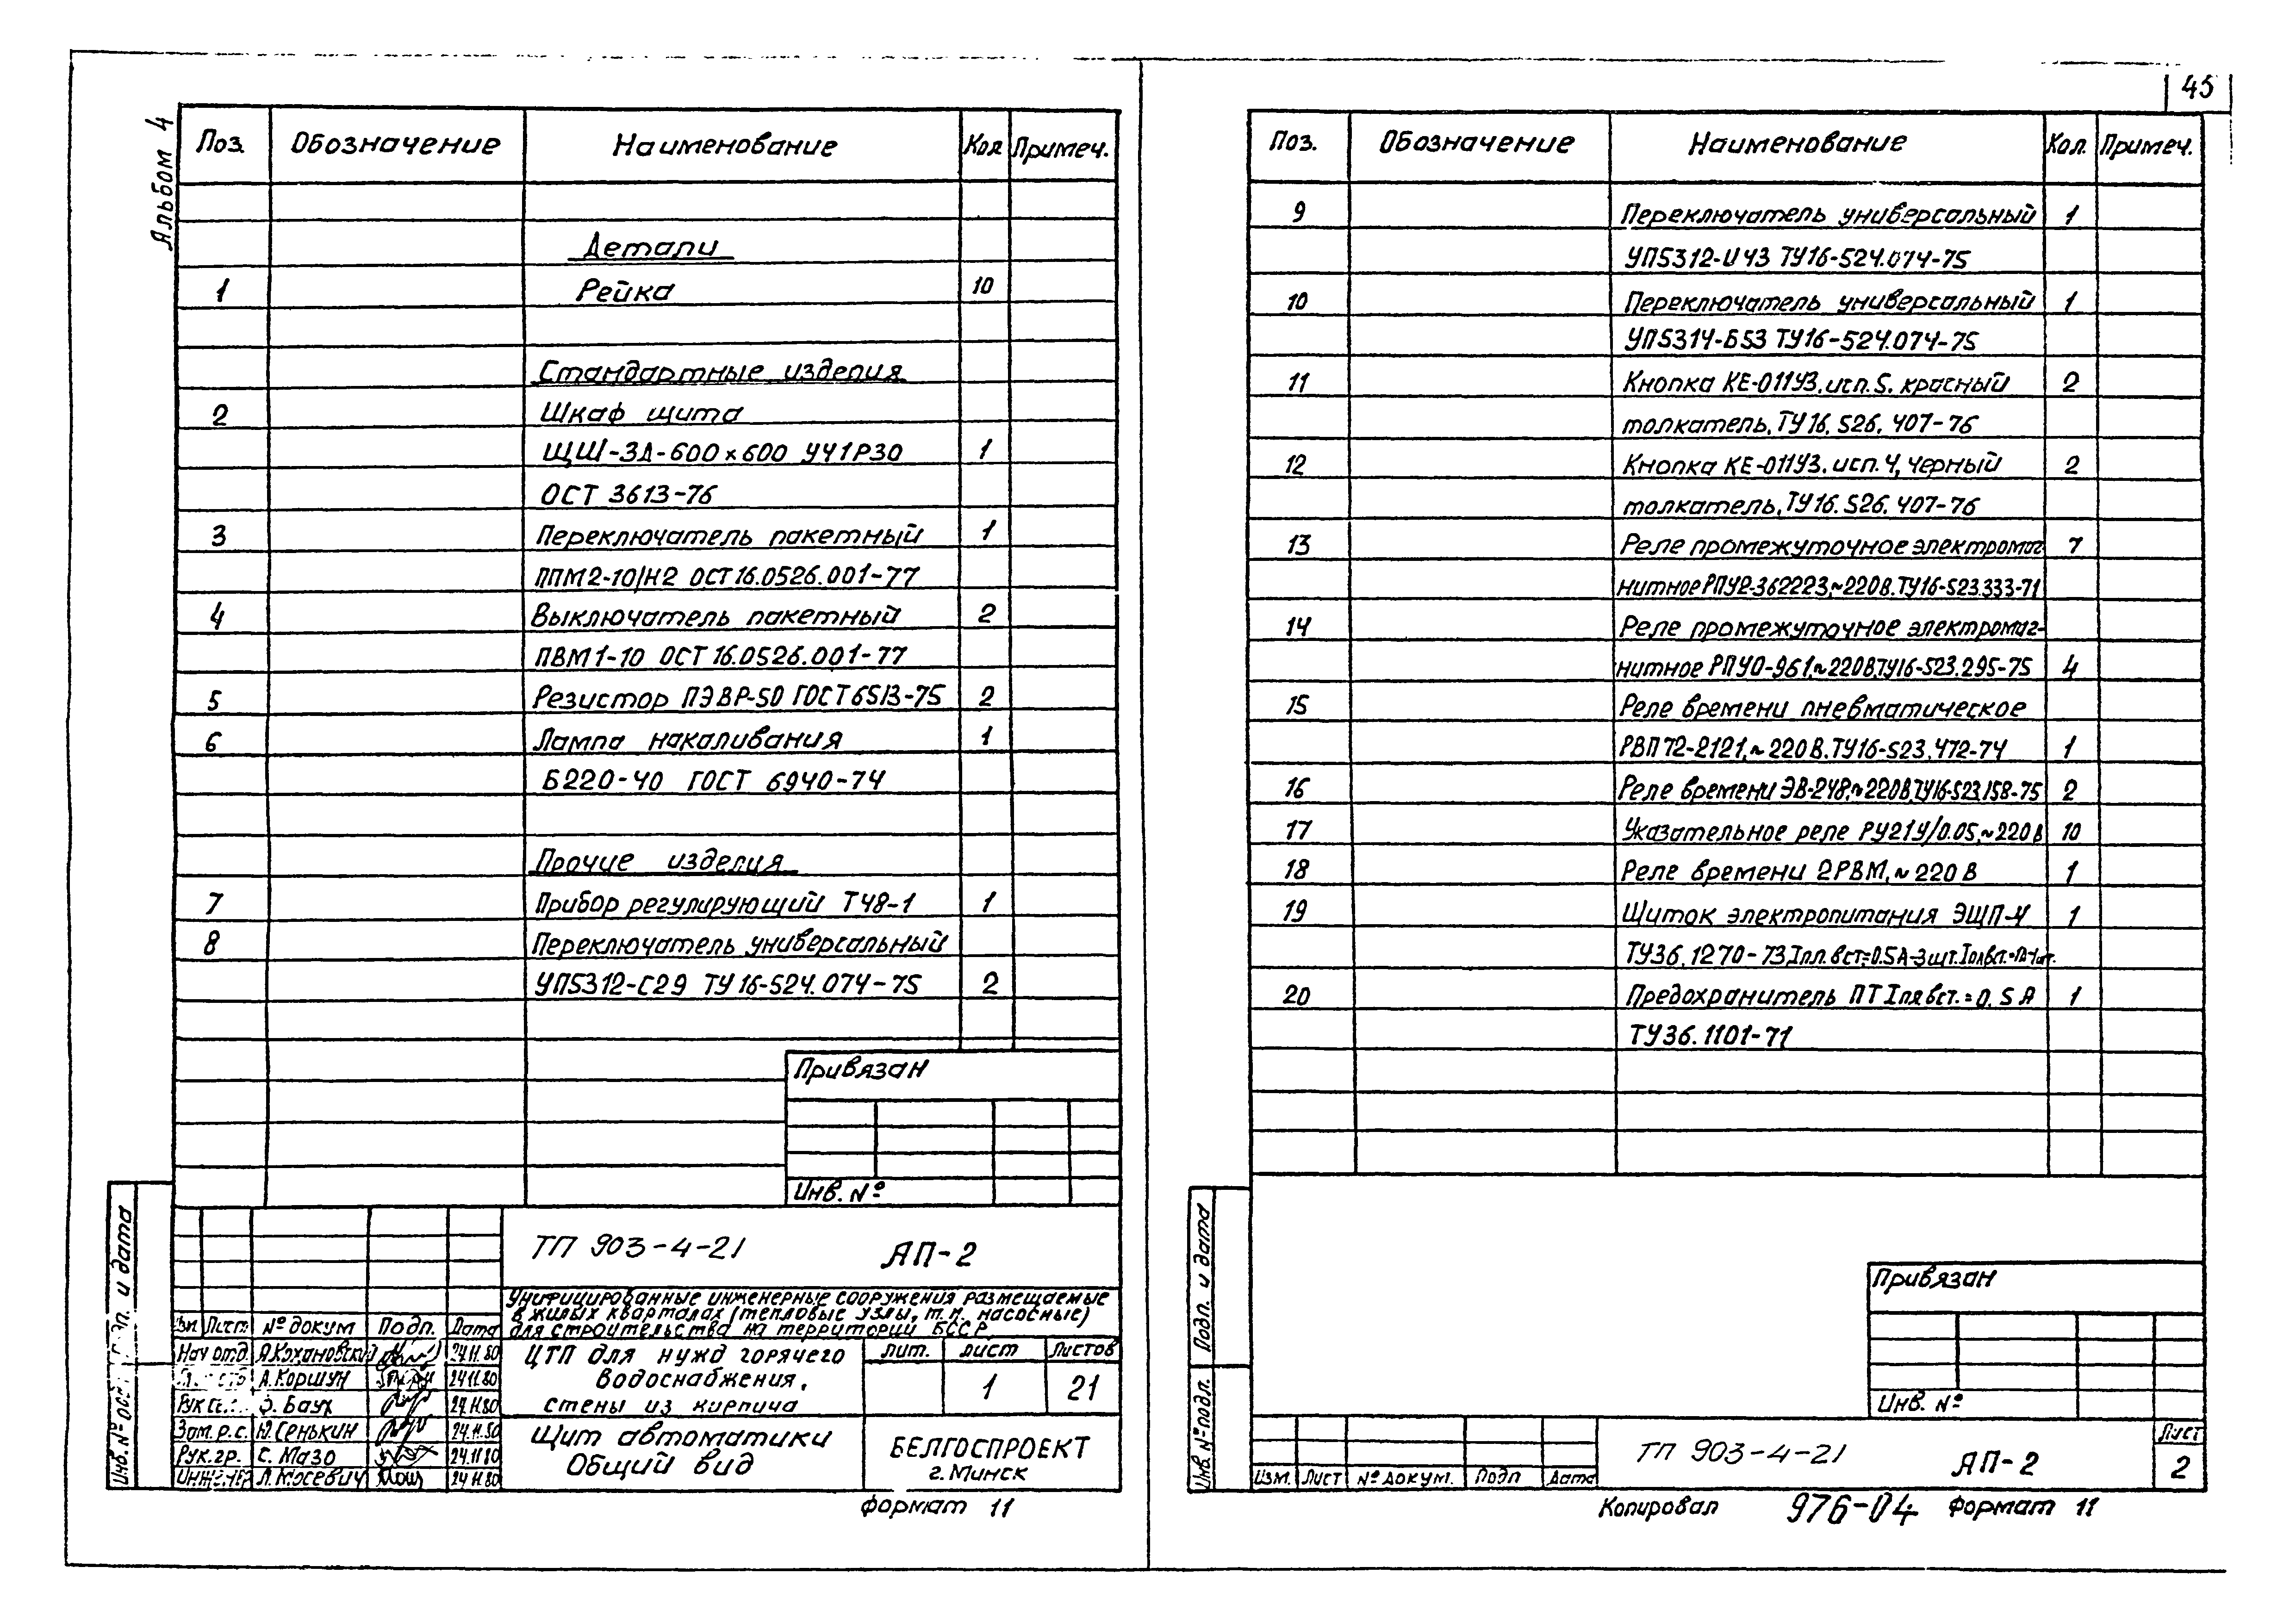 45
Альбом 4
Поз. Обозначение Наименование Кол Примеч.
Детали
1 Рейка 10
Стандартные изделия
2 Шкаф щита
ЩШ-ЗД-600×600 УЧ1Р30 1
ОСТ 3613-76
3 Переключатель пакетный 1
ППМ2-10/Н2 ОСТ16.0526.001-77
4 Выключатель пакетный 2
ПВМ1-10 ОСТ16.0526.001-77
5 Резистор ПЭВР-50 ГОСТ6513-75 2
6 Лампа накаливания 1
Б220-40 ГОСТ 6940-74
Прочие изделия
7 Прибор регулирующий Т48-1 1
8 Переключатель универсальный
УП5312-С29 ТУ16-524.074-75 2
Привязан
Инв. №
ТП 903-4-21 АП-2
Унифицированные инженерные сооружения размещаемые
в жилых кварталах (тепловые узлы, т.п. насосные)
для строительства на территории БССР
Изм. Лист № докум Подп. Дата
Нач отд. А.Кохановский 24.11.80
А.Коршун 24.11.80
Э. Баух 24.11.80
Зам. р.с. Ю.Сенькин 24.11.80
Рук.гр. С. Мазо 24.11.80
Инженер Л.Мосевич 24.11.80
ЦТП для нужд горячего
водоснабжения,
стены из кирпича
Лит. Лист Листов
1 21
Щит автоматики
Общий вид
БЕЛГОСПРОЕКТ
г. Минск
Формат 11
Поз. Обозначение Наименование Кол. Примеч.
9 Переключатель универсальный 1
УП5312-И43 ТУ16-524.074-75
10 Переключатель универсальный 1
УП5314-Б53 ТУ16-524.074-75
11 Кнопка КЕ-011У3. исп.5. красный 2
толкатель, ТУ16.526.407-76
12 Кнопка КЕ-011У3. исп.4, черный 2
толкатель, ТУ16.526.407-76
13 Реле промежуточное электромаг 7
нитное РПУ2-362223,~220В.ТУ16-523.333-71
14 Реле промежуточное электромаг-
нитное РПУ0-961,~220В,ТУ16-523.295-75 4
15 Реле времени пневматическое
РВП72-2121,~220В.ТУ16-523.472-74 1
16 Реле времени ЭВ-248,~220В,ТУ16-523.158-75 2
17 Указательное реле РУ21У/0.05,~220В 10
18 Реле времени 2РВМ,~220В 1
19 Щиток электропитания ЭЩП-М 1
ТУ36.1270-73 Iпл.вст=0.5А-3шт.
20 Предохранитель ПТ Iпл вст.=0.5А 1
ТУ36.1101-71
Подп. и дата
Инв. № подл.
Привязан
Инв. №
Изм. Лист № докум. Подп Дата
ТП 903-4-21 АП-2
Лист
2
Копировал 976-04 Формат 11